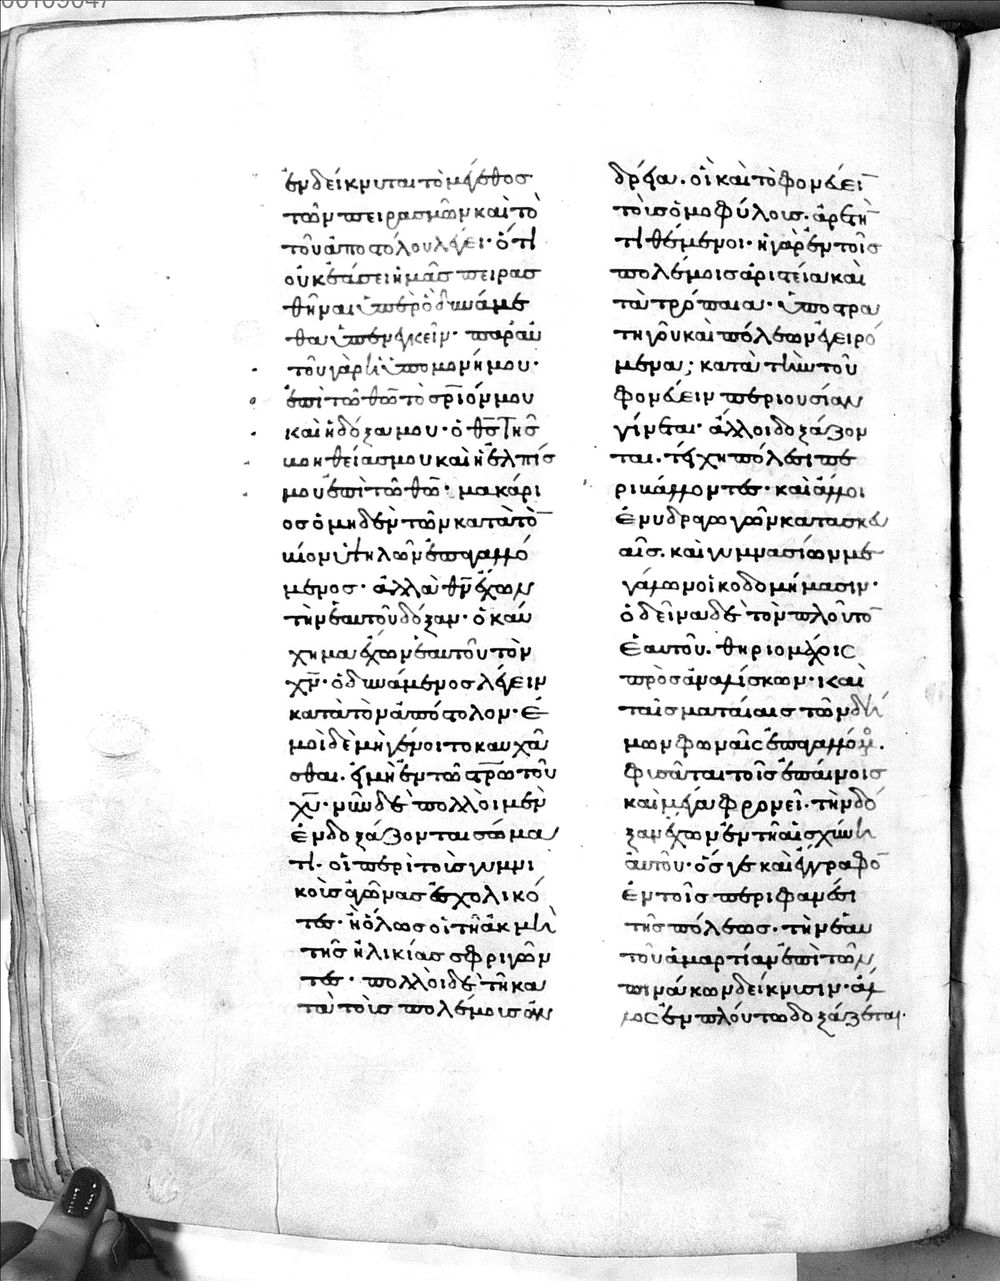 ἐνδείκνυται τὸ μέγεθος
τῶν πειρασμῶν καὶ τὸ
τοῦ ἀποστόλου λέγει· ὅτι
οὐκ ἐάσει ἡμᾶς πειρασ
θῆναι ὑπὲρ ὃ δυνάμε
θα ὑπενεγκεῖν· παρ' αὐ
τοῦ γὰρ ἡ ὑπομονή μου·
ἐπὶ τῶ θῶ τὸ σρϊόν μου
καὶ ἡ δόξα μου· ὁ θσ τῆσ
βοηθείασ μου καὶ ἡ ἐλπίσ
μου ἐπὶ τῶ θῶ· μακάρι
οσ ὁ μηδενὶ τῶν κατὰ τὸ
βίον ὑψηλῶν ἐπαγαλλό
μενοσ· ἀλλὰ θν ἔχων
τὴν ἑαυτοῦ δόξαν· ὁ καύ
χημα ἔχων ἑαυτοῦ τὸν
χν· ὁ δυνάμενοσ λέγειν
κατὰ τὸν ἀπόστολον· ἐ
μοὶ δὲ μὴ γένοιτο καυχᾶ
σθαι. εἰ μὴ ἐν τῶ στρω τοῦ
χυ· νῦν δὲ πολλοὶ μὲν
ἐνδοξάζονται σώμα
τι· οἱ περὶ τοὺσ γυμνι
κοὺσ ἀγῶνασ ἐσχολικό
τεσ· ἢ ὅλωσ οἱ τῆ ἀκμῆ
τῆσ ἡλικίασ σφριγῶν
τεσ· πολλοὶ δὲ τῆ κα
τὰ τοὺσ πολέμουσ ἀν
δρεία. οἳ καὶ τὸ φονεύειν
τοὺσ ὁμοφύλουσ. ἀρετὴν
τιθέμενοι· ἡ γὰρ ἐν τοῖσ
πολέμοισ ἀριστεία καὶ
τὰ τρόπαια· ὑπὸ στρα
τηγοῦ καὶ πόλεων ἐγειρό
μενα; κατὰ τὴν τοῦ
φονεύειν περιουσίαν
γίνεται· ἄλλοι δοξάζον
ται. τείχη πόλεσι πε
ριβάλλοντεσ· καὶ ἄλλοι
ἐν ὑδραγωγῶν κατασκευ
αῖσ. καὶ γυμνασίων με
γάλων οἰκοδομήμασιν·
ὁ δεῖνα δὲ τὸν πλοῦτον
ἑαυτοῦ. θηριομάχοισ
προσαναλίσκων· καὶ
ταῖσ ματαίαισ τῶν δή
μων φωναῖς ἐπαγαλλόμενος.
φυσᾶται τοῖσ ἐπαίνοισ
καὶ μέγα φρονεῖ. τὴν δό
ξαν ἔχων ἐν τῆ αἰσχύνη
αὐτοῦ· ὅσ γε καὶ ἔγγραφον
ἐν τοῖσ περιφανέσι
τῆσ πόλεωσ. τὴν ἑαυ
τοῦ ἁμαρτίαν ἐπὶ τῶν
πινάκων δείκνυσιν· ἄλ
λος ἐν πλούτω δοξάζεται·